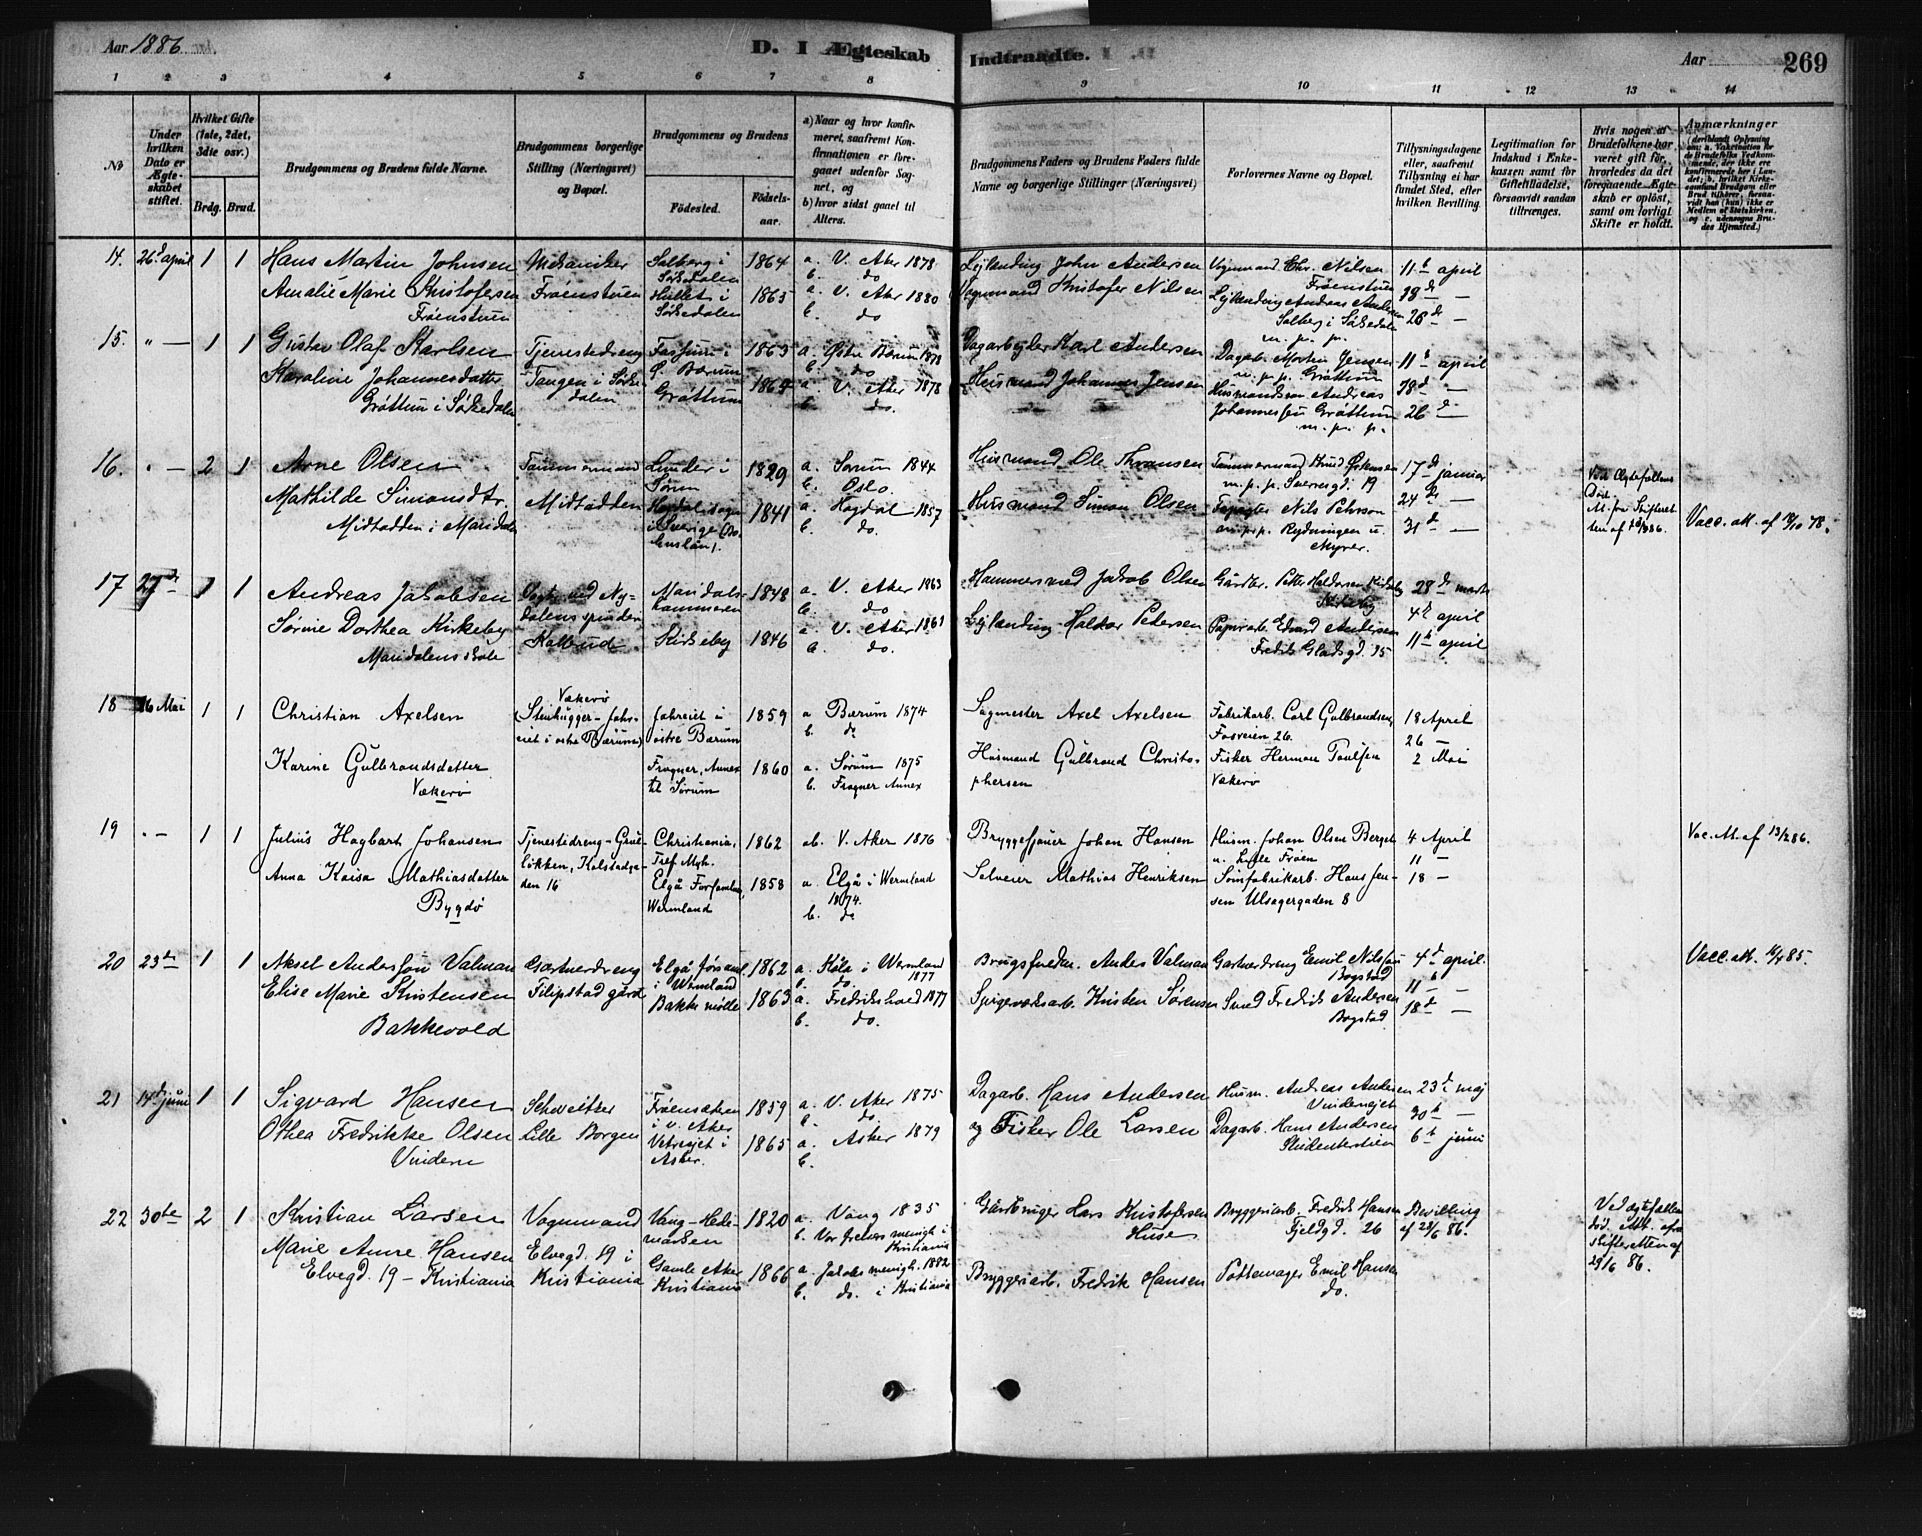 Aar 1886
D. I Ægteskab
Indtraadte.
Aar
269
1 2 3 4 5 6 7 8 9 10 11 12 13 14
No
Under hvilken Dato er Ægteskabet stiftet.
Hvilket Gifte (1ste, 2det, 3die osv.)
Brdg. Brud.
Brudgommens og Brudens fulde Navne.
Brudgommens borgerlige Stilling (Næringsvei) og Bopæl.
Brudgommens og Brudens
Fødested.
Fødselsaar.
a) Naar og hvor konfirmeret, saafremt Konfirmationen er foregaaet udenfor Sognet, og
b) hvor sidst gaaet til Alters.
Brudgommens Faders og Brudens Faders fulde Navne og borgerlige Stillinger (Næringsvei)
Forlovernes Navne og Bopæl.
Tillysningsdagene eller, saafremt Tillysning ei har fundet Sted, efter hvilken Bevilling.
Legitimation for Indskud i Enkekassen samt for Giftetilladelse, forsaavidt saadan tiltrænges.
Hvis nogen af Brudefolkene har været gift før, hvorledes da det foregaaende Ægteskab er opløst, samt om lovligt Skifte er holdt.
Anmærkninger
14. 26d april 1 1 Hans Martin Johnsen Mekaniker Solberg i Sörkedalen 1864 a. V. Aker 1878 b. do Lejlending John Andersen Vognmand Chr. Nilsen Fröenstuen 11t april
Amalie Marie Kristofersen Fröenstuen Fröenstuen Hullet i Sörkedalen 1865 a. V. Aker 1880 b. do Vognmand Kristofer Nilsen Lejlending Andreas Andersen Solberg i Sörkedalen m. p. p. 18d — 26d —
15. " — 1 1 Gustav Olaf Karlsen Tjenestedreng Fossum i Ø. Bærum 1863 a. Østre Bærum 1878 b. do Dagarbejder Karl Andersen Dagarb. Morten Jensen m. p. p. Gröttum 11t april
Karoline Johannesdatter Gröttum i Sörkedalen Tangen i Sörkedalen Gröttum 1864 a. V. Aker 1878 b. do. Husmand Johannes Jensen Husmandssøn Andreas Johannessen Gröttum m. p. p. 18d — 26d —
16. " — 2 1 Arne Olsen Tømmermand Lunder i Sørum 1829 a. Sørum 1844 b. Oslo. Husmand Ole Tømmermand Knud m. p. p. 19 17d januar Ved Ægtefællens Død
Mathilde Simonsdtr. Midtodden i Maridalen Midtodden Hogdal sogn i Sverige 1841 a. Hogdal 1857 b. do. Husmand Simon Olsen Nils Pehrson m. p. p. Rydningen u. Myrer. 24de — 31d — Vacc. att. af 78.
17 27de 1 1 Andreas Jakobsen ved Nydalens spinderi Maridalshammeren 1848 a. V. Aker 1863 b. do Hammersmed Jakob Olsen Gårdbr. Petter Haldorsen Kirkeby 28de marts
Sörine Dorthea Kirkeby Maridalens skole Kalbrud Kirkeby 1846 a. V. Aker 1861 b. do. Lejlending Haldor Petersen Papirarb. Edvard Andersen Fredrik Gladsgd. 15 4de april 11t april
18 16 Mai 1 1 Christian Axelsen Vækerø (Stenhugger - i østre Bærum) i østre Bærum 1859 a Bærum 1874 b. do Sagmester Axel Axelsen Fabrikarb. Carl Gulbrandsen, Fosveien 26. 18 April 26 —
Karine Gulbrandsdatter Vækerø Frogner, Annex til Sørum 1860 a. Sørum 1875 b. Frogner Annex Husmand Gulbrand Christophersen Fisker Herman Paulsen Vækerø 2 Mai
19 " — 1 1 Julius Hagbart Johansen Tjenestedreng - Grueløkken, Kolstadgaden 16 Christiania, Tref. Mgh. 1862 ab. V. Aker 1876 Bryggesjauer Johan Hansen Husm. Johan Olsen Berget u. Lille Frøen 4 April 11 — Vac. At. af 13/2 86.
Anna Kaisa Mathiasdatter Bygdö Elgå Forsamling, Wermland 1858 a. Elgå i Wermland 1874. b. do Mathias Henriksen Sömfabrikarb. Hans Jensen Ulsagergaden 8 18 —
20 23de 1 1 Aksel Andersson Valman Gartnerdreng Elgå församl. i Wermland 1862 a. Köla i Wermland 1877 b. do. Andes Valman Gartnerdreng Emil Nilssen Bogstad 4d april. Vacc. att. 85.
Elise Marie Kristensen Bakkevold Filipstad gård Bakke mölle 1863 a. Fredrikshald 1877 b. do. Spigerværksarb. Kristen Sørensen Smed Fredrik Andersen Bogstad 11t — 18d —
21 14d juni 1 1 Sigvard Hansen Schweitzer Fröensæteren i v. Aker 1859 a. V. Aker 1875 b. do. Dagarb. Hans Andersen Husm. Andreas Andersen Vindernejet 23d maj
Othea Fredrikke Olsen Vindern Lille Borgen i Asker. 1865 a. Asker 1879 b. og Fisker Ole Larsen Dagarb. Hans Andersen Studenterstien 30t — 6t juni
22 30te 2 1 Kristian Larsen Vognmand Vang - Hedemarken 1820 a. Vang 1835 b. Vor frelsers menigh i Kristiania Gårdbruger Lars Kristofersen Huse Bryggeriarb. Fredrik Hansen Fjeldgd. 26 Bevilling af 28/6 86. Ved ægtefællens död. Att. fra skifteretten af 29/6 86.
Marie Anne Hansen Elvegd. 19 - Kristiania Elvegd. 19 i Kristiania Gamle Aker Kristiania 1866 a. Jakobs menigh. 1882 b. do. i Kristiania Bryggeriarb. Fredrik Hansen Pottemager Emil Hansen do.